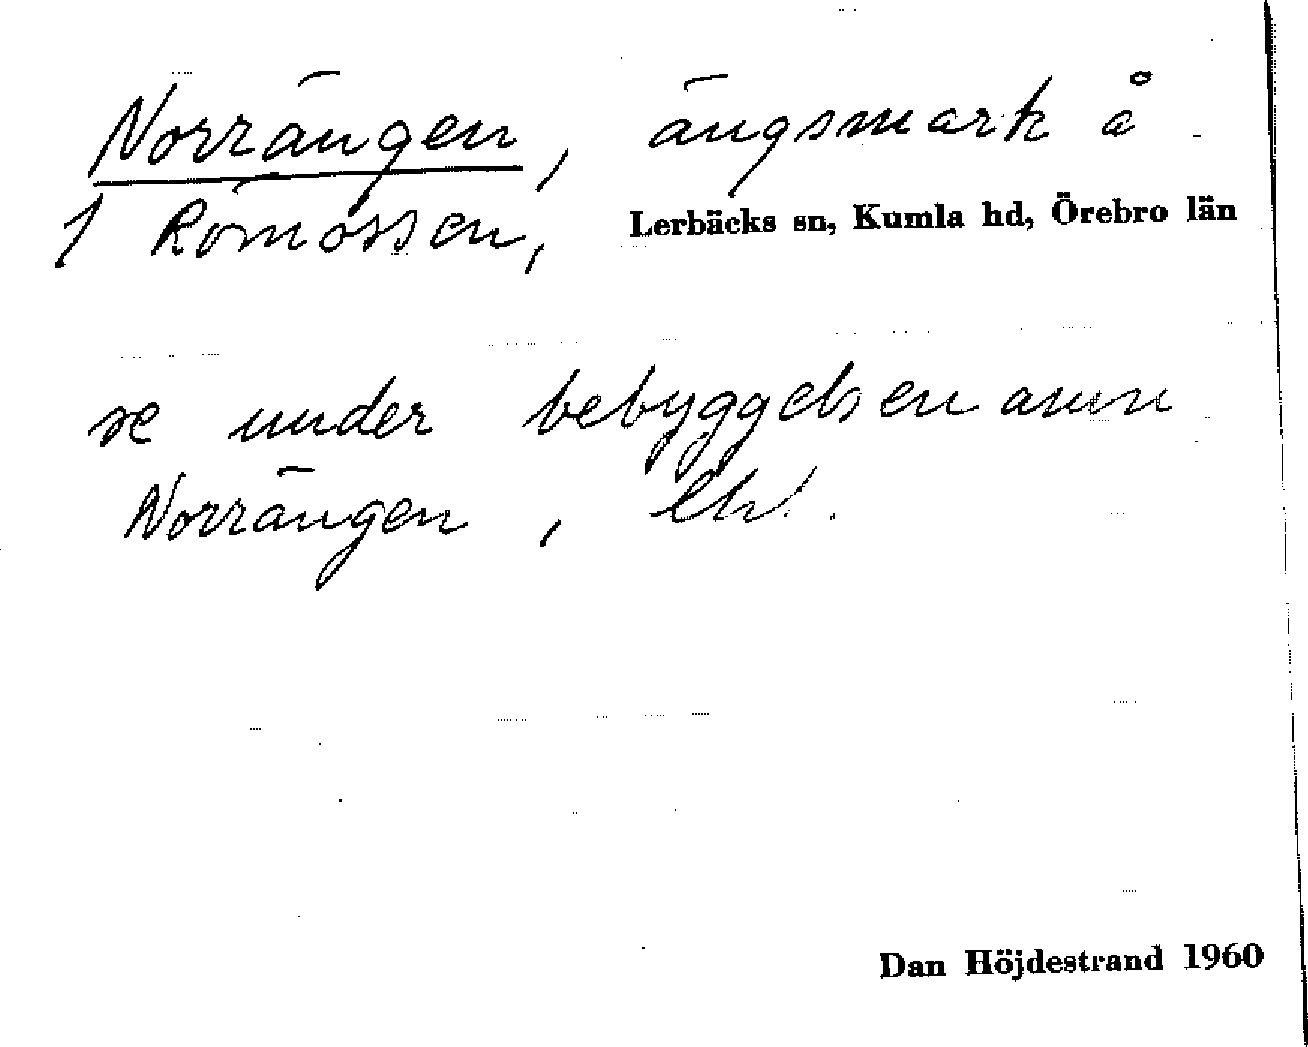 Norrängen, ängsmark å
1 Römossen, Lerbäcks sn, Kumla hd, Örebro län
se under bebyggelsenamn
Norrängen,
Dan Höjdestrand 1960